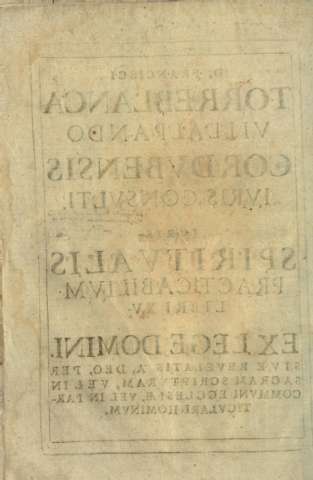 D. FRANCISCI.
TORREBLANCA
VILLALPANDO
CORDVBENSIS
IVRIS CONSVLTI.
IVRIS
SPIRITVALIS
PRACTICABILIVM.
LIBRI XV.
EX LEGE DOMINI.
SIVE REVELATIS, A, DEO, PER
SACRAM SCRIPTVRAM, VEL IN
COMMVNI ECCLESIÆ, VEL IN PAR-
TICVLARI HOMINVM.